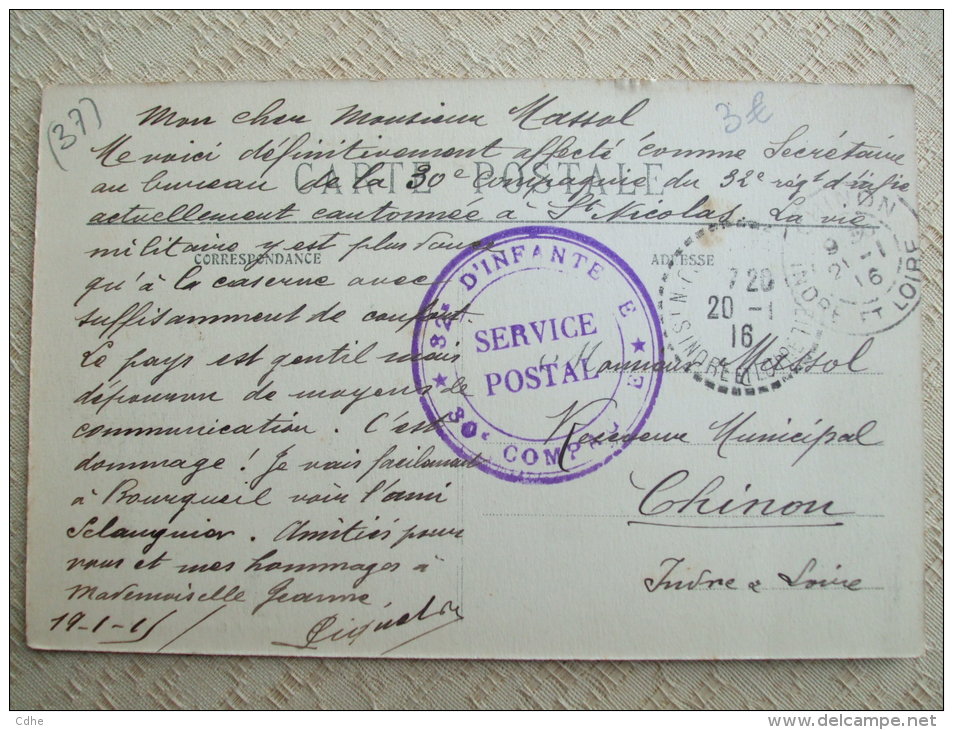 (37)
3€
Mon cher Monsieur Massol
Me voici définitivement affecté comme Secrétaire
au bureau de la 30e Compagnie du 32e régt d'infie
CARTE POSTALE
actuellement cantonnée à St Nicolas. La vie
militaire y est plus douce
CORRESPONDANCE
ADRESSE
qu'à la caserne avec
suffisamment de confort.
Le pays est gentil mais
dépourvu de moyens de
communication. C'est
dommage ! Je vais facilement
à Bourgueil voir l'ami
Amitiés pour
vous et mes hommages à
Mademoiselle Jeanne
19-1-15
32e D'INFANTE E
SERVICE
POSTAL
30e COMP
7 20
20 - 1
16
INDRE ET LOIRE
21 - 1
16
Monsieur Massol
Receveur Municipal
Chinon
Indre & Loire
Cdhe
www.delcampe.net